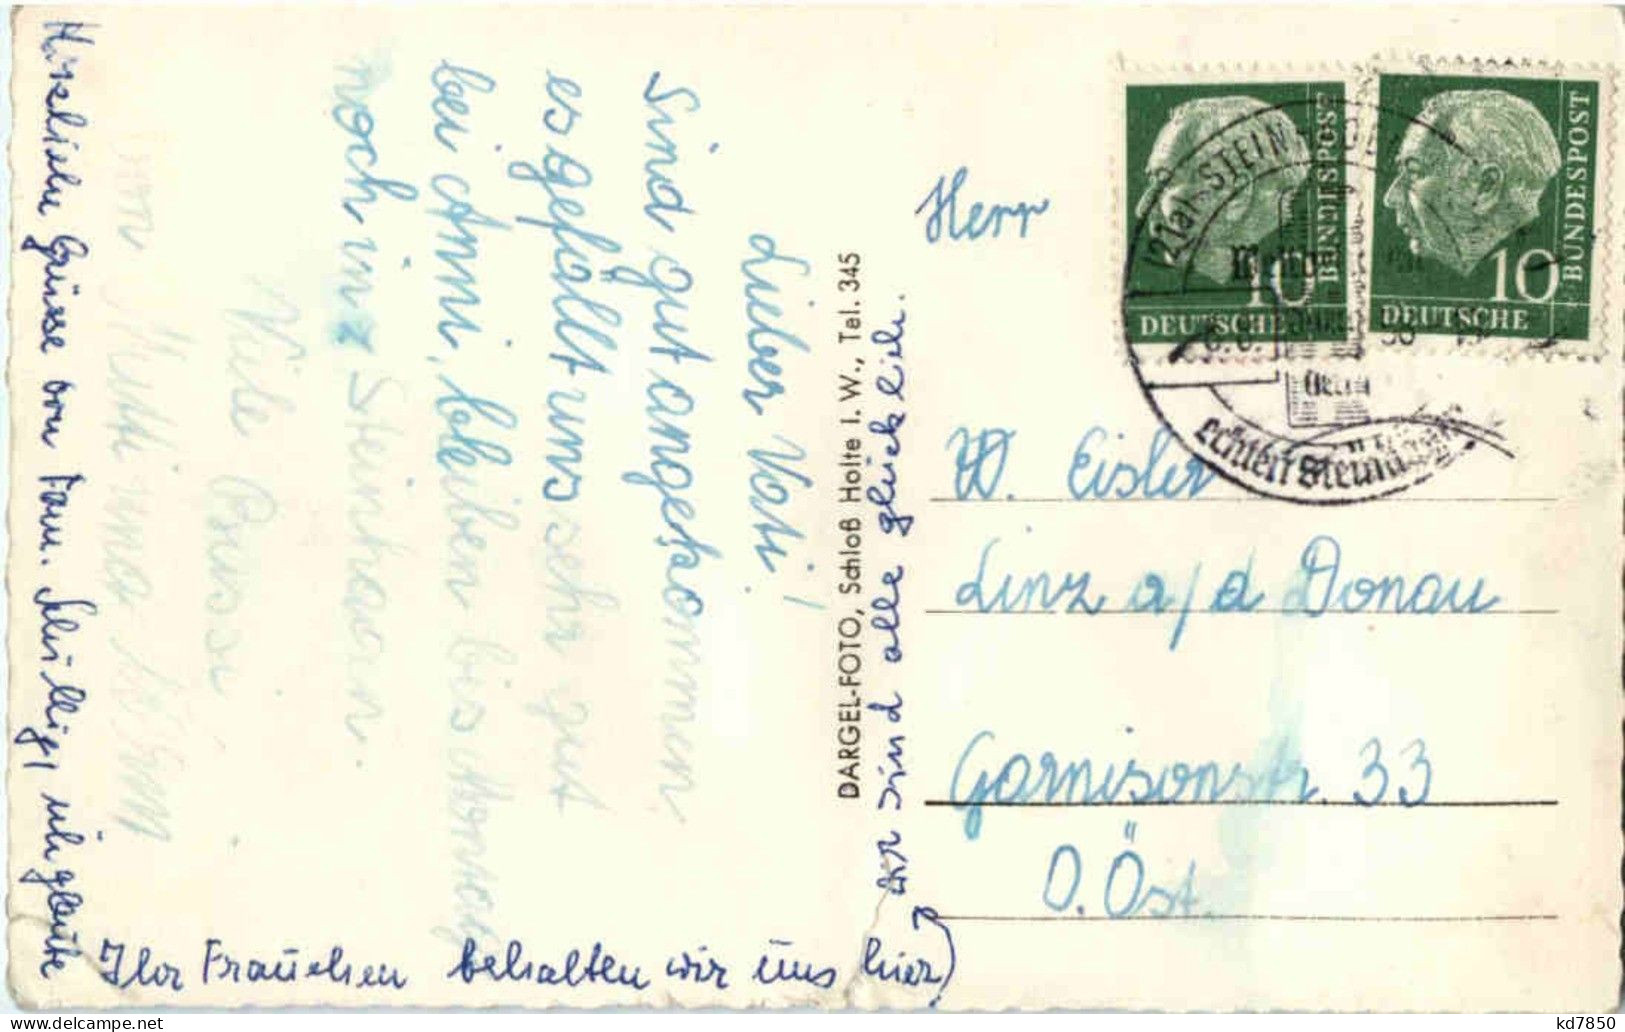 Lieber Vati!
Sind gut angekommen
es gefällt uns sehr gut
bei Anni, bleiben bis Montag
noch in Steinhagen.
Viele Grüsse
Herzliche Grüsse von Fam. ich glaube
Ihr Frauchen behalten wir uns hier)
wir sind alle glücklich.
DARGEL-FOTO, Schloß Holte I. W., Tel. 345
Herr
W. Eisler
Linz a/d Donau
Garnisonstr. 33
O. Öst.
DEUTSCHE BUNDESPOST 10
DEUTSCHE BUNDESPOST 10
(21a) STEINHAGEN
echten Steinhäger
kd7850